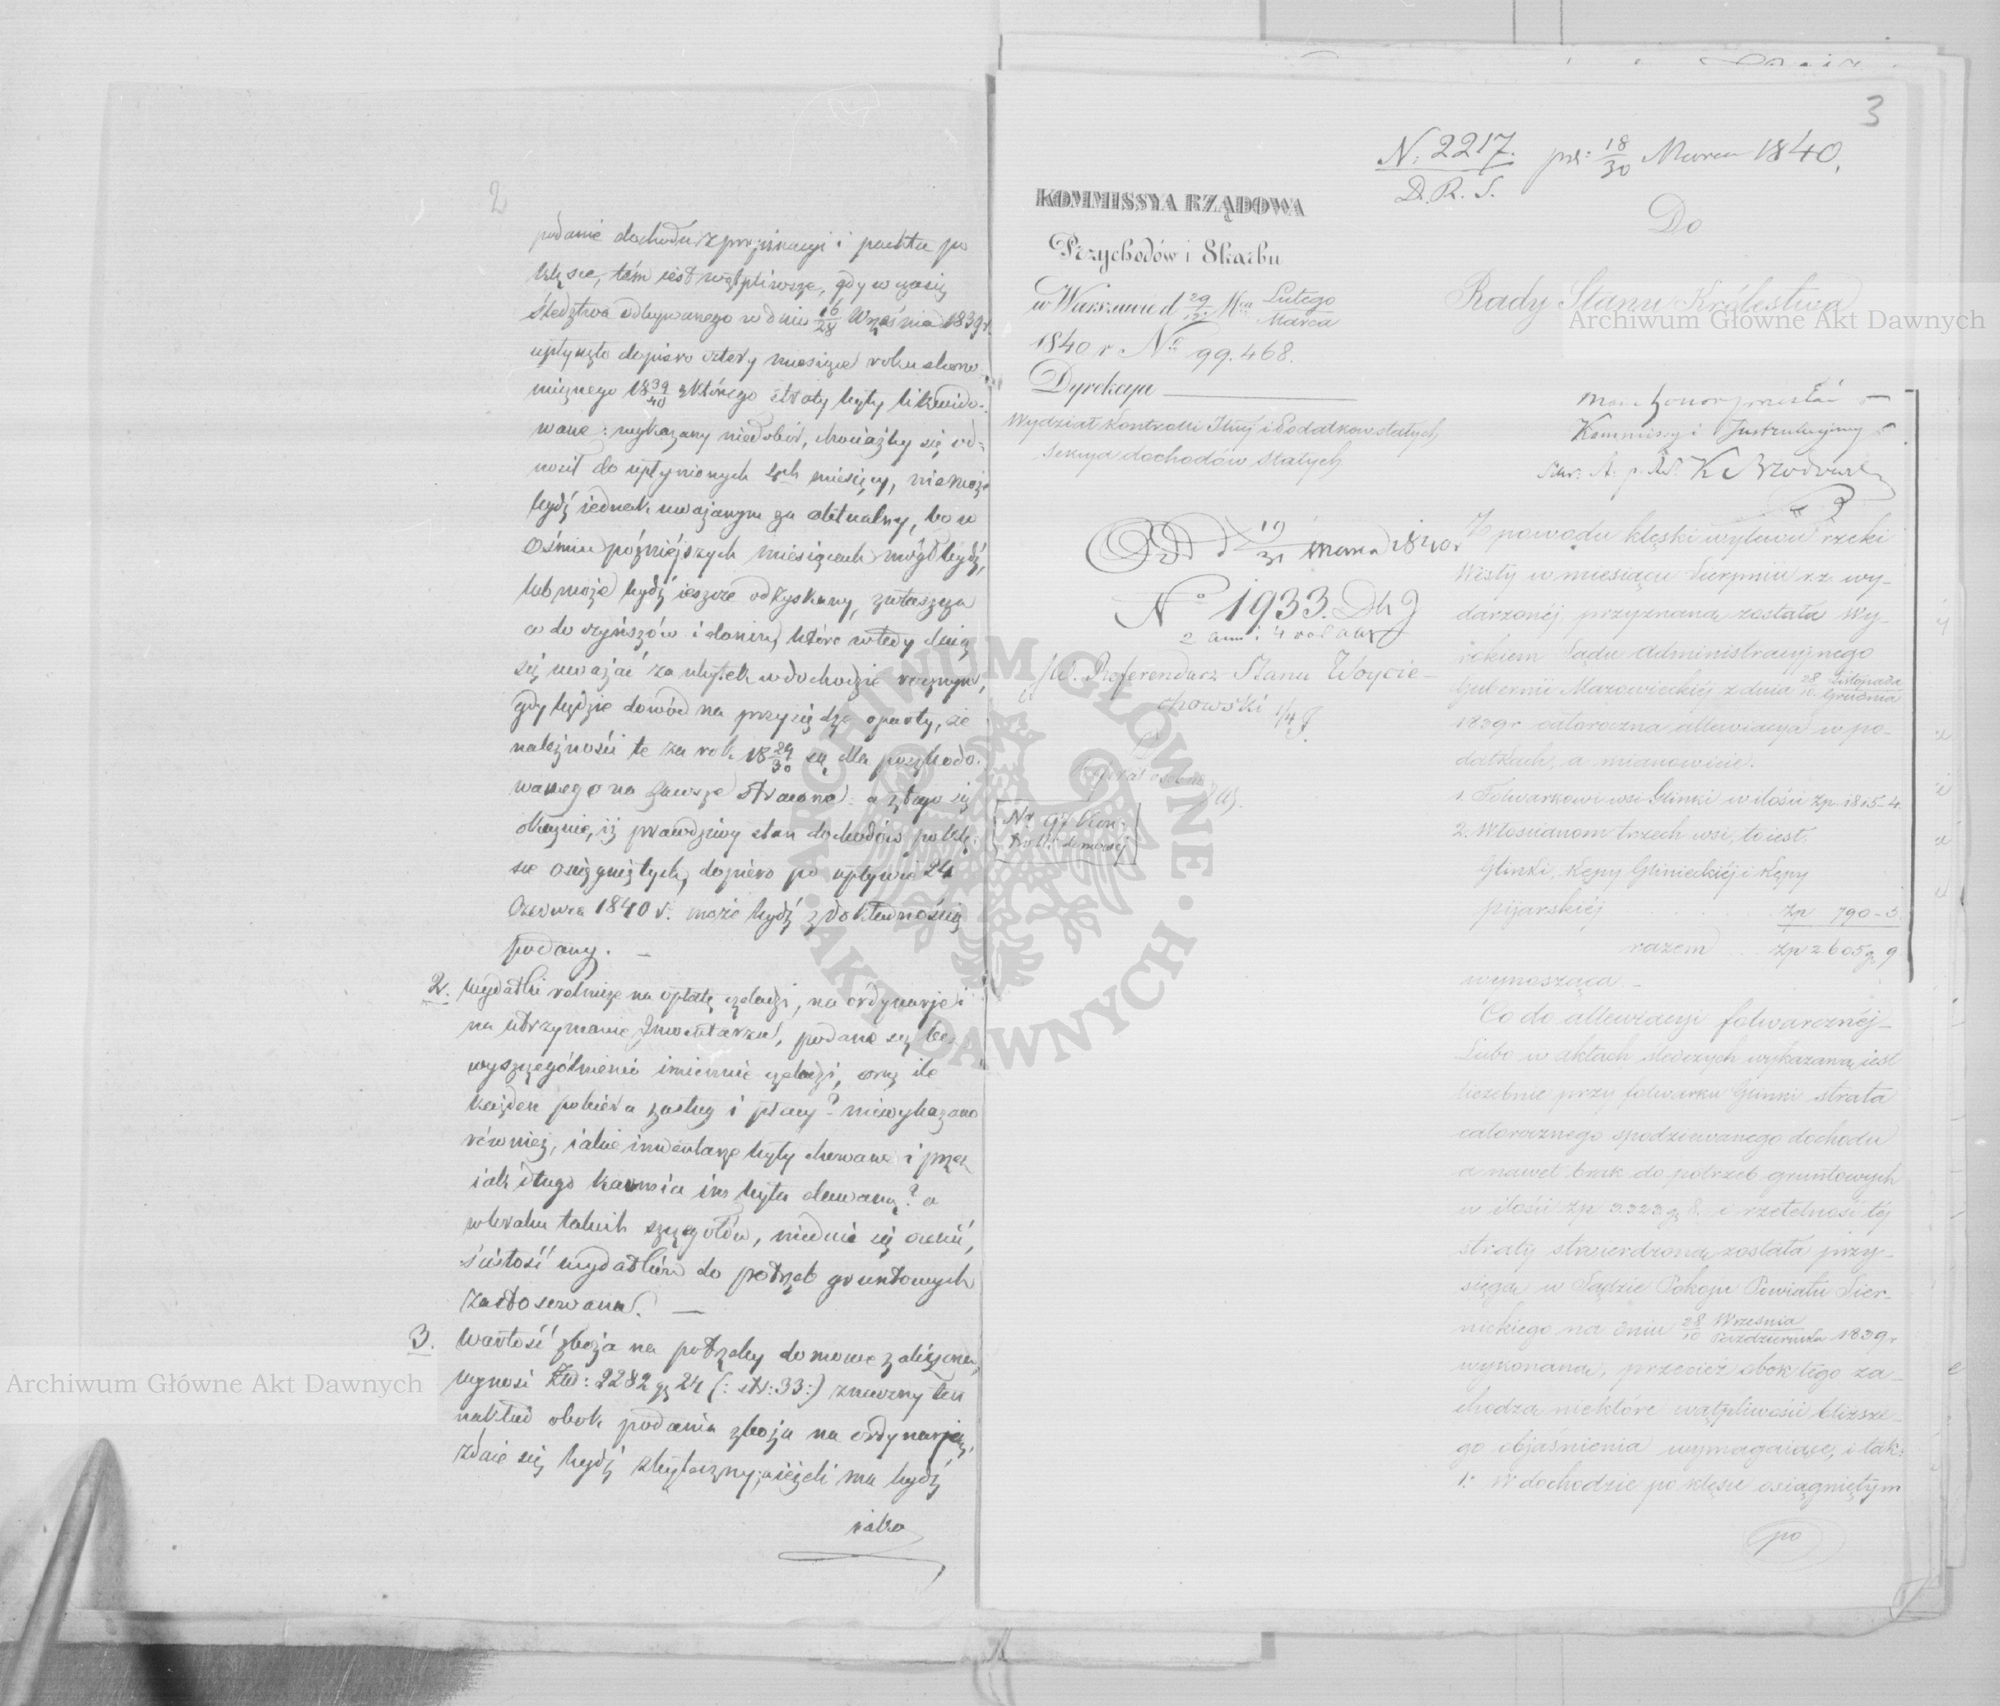 2
podanie dochodu z propinacyi i pachtu po
klęsce, tém iest wątpliwsze, gdy w czasie
śledztwa odbywanego w dniu 16/28 Września 1839 r
upłynęło dopiero cztery miesiące roku ekono-
micznego 18 39/40 z którego straty były likwido-
wane: wykazany niedobór, chociażby się od-
nosił do upłynionych 4ch miesięcy, niemoże
bydź iednak uważanym za aktualny, bo w
ośmiu późniejszych miesiącach mógł bydź,
lub może bydź ieszcze odzyskany, zwłaszcza
co do czynszów i danin, które wtedy
się uważać za ubytek w dochodzie rocznym,
gdy będzie dowód na przysiędze oparty, że
należności te za rok 18 29/30 są dla poszkodo-
wanego na zawsze stracone: a z tego się
okazuie, iż prawdziwy stan dochodów po klę-
sce osiągniętych, dopiero po upływie 24
Czerwca 1840 r. może bydź z dokładnością
podany. —
2. Wydatki rolnicze na opłatę czeladzi, na ordynarje i
na utrzymanie Inwentarza, podane są bez
wyszczególnienia imiennie czeladzi, oraz ile
każden pobiera zasług i płacy? niewykazano
również, iakie inwentarze były chowane i przez
iak długo karmia im była dawaną? a
w braku takich szczegółów, nieda się ocenić,
ścisłość wydatków do potrzeb gruntowych
zastosowana. —
3. Wartość zboża na potrzeby domowe zaliczona,
wynosi Złł: 2282 gr 24 (: str: 33:) znaczny ten
nakład obok podania zboża na ordynarją,
zdaie się bydź zbyteczny; ieżeli ma bydź
iako
3
N. 2217. pr: 18/30 Marca 1840.
D. R. S.
KOMMISSYA RZĄDOWA
Przychodów i Skarbu
w Warszawie d 29/12 Mca Lutego/Marca
1840 r No 99.468.
Dyrekcya
Wydział Kontrolli i Podatków stałych
Sekcya dochodów stałych
Do
Rady Stanu Królestwa
mam honor przesłać
Kommissyi Instrukcyjney
d 19/31 marca 1840 r
No 1933.
JW. Referendarz Stanu Woycie-
chowski
Z powodu klęski wylewu rzeki
Wisły w miesiącu Sierpniu r.z. wy-
darzonéj, przyznana została Wy-
rokiem Sądu Administracyjnego
Gubernii Mazowieckiéj z dnia 28/10 Listopada/Grudnia
1839 r całoroczna allewiacya w po-
datkach, a mianowicie.
1. Folwarkowi wsi Glinki w ilości Zp. 1815-4
2. Włościanom trzech wsi, to iest.
Glinki, Kępy Glinieckiéj i Kępy
pijarskiéj . . . Zp 790-5
razem . . Zp 2605 g 9
wynosząca. —
Co do allewiacyi folwarcznéj-
Lubo w aktach śledczych wykazaną iest
liczebnie przy folwarku Glinki strata
całorocznego spodziewanego dochodu
a nawet brak do potrzeb gruntowych
w ilości Zp 3323 g 8. i rzetelność téj
straty stwierdzoną została przy-
sięgą w Sądzie Pokoju Powiatu Sien-
nickiego na dniu 28/10 Września/Października 1839 r
wykonaną, przecież obok tego za-
chodzą niektóre wątpliwości bliższe-
go objaśnienia wymagaiące, i tak:
1. W dochodzie po klęsce osiągniętym
po
Archiwum Główne Akt Dawnych
Archiwum Główne Akt Dawnych
ARCHIWUM GŁÓWNE
AKT DAWNYCH